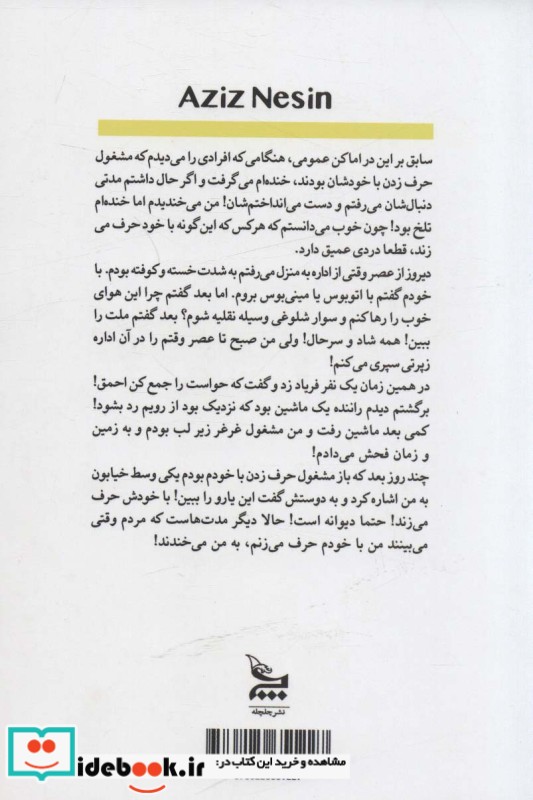 Aziz Nesin
سابق بر این در اماکن عمومی، هنگامی‌که افرادی را می‌دیدم که مشغول
حرف زدن با خودشان بودند، خنده‌ام می‌گرفت و اگر حال داشتم مدتی
دنبال‌شان می‌رفتم و دست می‌انداختم‌شان! من می‌خندیدم اما خنده‌ام
تلخ بود! چون خوب می‌دانستم که هرکس که این‌گونه با خود حرف می
زند، قطعا دردی عمیق دارد.
دیروز از عصر وقتی از اداره به منزل می‌رفتم به شدت خسته و کوفته بودم. با
خودم گفتم با اتوبوس یا مینی‌بوس بروم. اما بعد گفتم چرا این هوای
خوب را رها کنم و سوار شلوغی وسیله نقلیه شوم؟ بعد گفتم ملت را
ببین! همه شاد و سرحال! ولی من صبح تا عصر وقتم را در آن اداره
زپرتی سپری می‌کنم!
در همین زمان یک نفر فریاد زد و گفت که حواست را جمع کن احمق!
برگشتم دیدم راننده یک ماشین بود که نزدیک بود از رویم رد بشود!
کمی بعد ماشین رفت و من مشغول غرغر زیر لب بودم و به زمین
و زمان فحش می‌دادم!
چند روز بعد که باز مشغول حرف زدن با خودم بودم یکی وسط خیابون
به من اشاره کرد و به دوستش گفت این یارو را ببین! با خودش حرف
می‌زند! حتما دیوانه است! حالا دیگر مدت‌هاست که مردم وقتی
می‌بینند من با خودم حرف می‌زنم، به من می‌خندند!
نشر چلچله
مشاهده و خرید این کتاب در:
idebook.ir